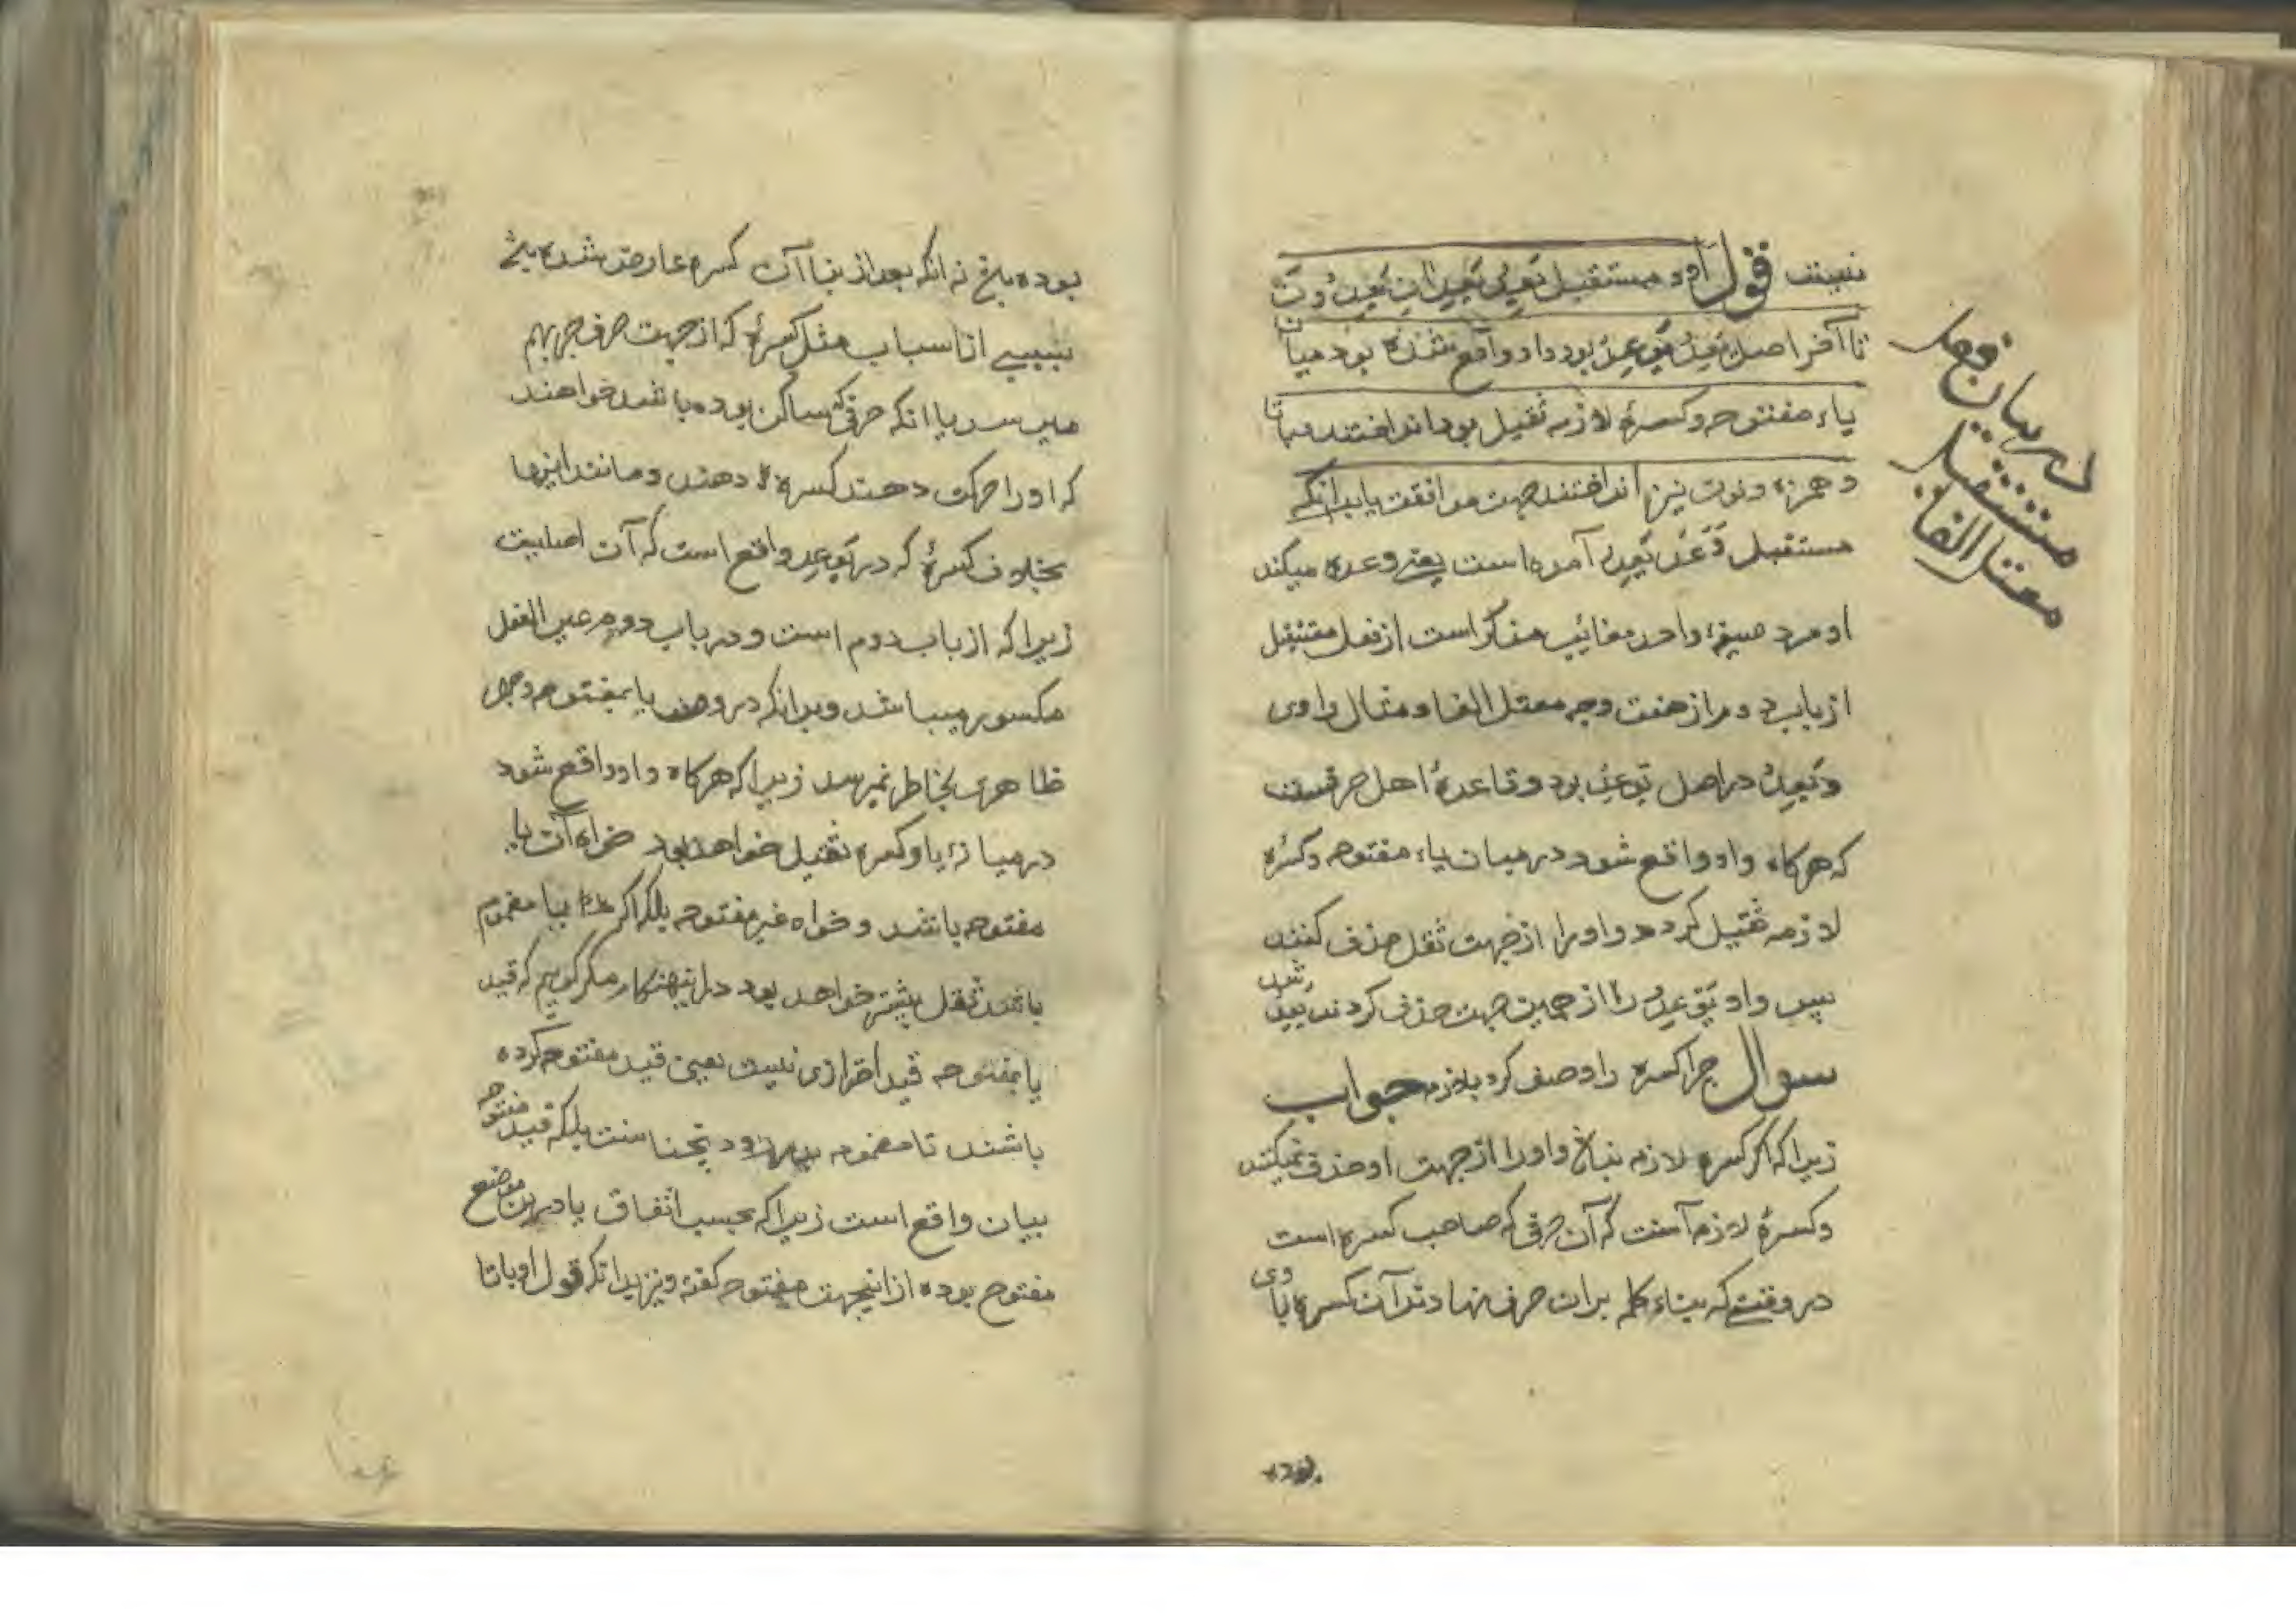 نیست قول او و مستقبل یَعِدُ یَعِدانِ یَعِدُونَ
تا آخر اصل یَعِدُ یَوْعِدُ بود واو واقع شده بود میان
یاء مفتوحه و کسرهٔ لازمه ثقیل بود انداختند و با تا
و همزه و نون نیز انداختند جهت موافقت یا بدانکه
مستقبل وَعَدَ یَعِدُ آمده است یعنی وعده میکند
او مرد صیغهٔ واحد مغایب مذکر است از فعل مستقبل
از باب دوم از هفت وجه معتل الفا و مثال واوی
و یَعِدُ در اصل یَوْعِدُ بود و قاعدهٔ اهل صرفست
که هرکاه واو واقع شود در میان یاء مفتوحه و کسرهٔ
لازمه ثقیل کردد واو را از جهت ثقل حذف کنند
پس واو یَوْعِدُ را از همین جهت حذف کردند یَعِدُ شد
سوال چرا کسره را وصف کرد بلازمه جواب
زیرا که اکر کسره لازمه نباشد واو را از جهت او حذف نمیکنند
و کسرهٔ لازمه آنست که آن حرفی که صاحب کسره است
در وقتی که بناء کلمه بران حرف نهادند آن کسره با وی
بوده
در بیان فعل
مستقبل
معتل الفا
بوده باشد نه انکه بعد از بنا آن کسره عارض شده باشد
بسببی از اسباب مثل کسرهٔ که از جهت حرف جر بهم
میرسد یا انکه حرفی که ساکن بوده باشد خواهند
که او را حرکت دهند کسره دهند و مانند اینها
بخلاف کسرهٔ که در یَوْعِدُ واقع است که آن اصلیست
زیرا که از باب دوم است و در باب دوم عین الفعل
مکسور میباشد و بدانکه در وصف یا بمفتوحه وجهی
ظاهری بخاطر نمیرسد زیرا که هرکاه واو واقع شود
در میانهٔ یا و کسره ثقیل خواهد بود خواه آن یا
مفتوحه باشد و خواه غیر مفتوحه بلکه اکر یا مضموم
باشد ثقل بیشتر خواهد بود در اینهنکام مکر کوییم که قید
یا بمفتوحه قید احترازی نیست یعنی قید مفتوحه کرده
باشند تا مضمومه بدر رود نچنانست بلکه قید مفتوحه
بیان واقع است زیرا که بحسب اتفاق یا درین موضع
مفتوح بوده از اینجهت مفتوحه کفته و نیز بدانکه قول او با تا